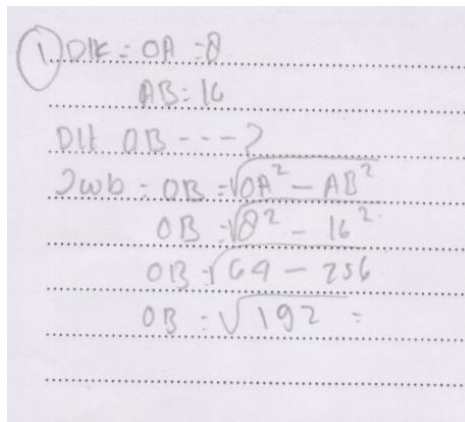 1) Dik = OA = 8
AB = 16
Dit OB ---?
Jwb = OB = √OA² - AB²
OB = √8² - 16²
OB = √64 - 256
OB = √192 =